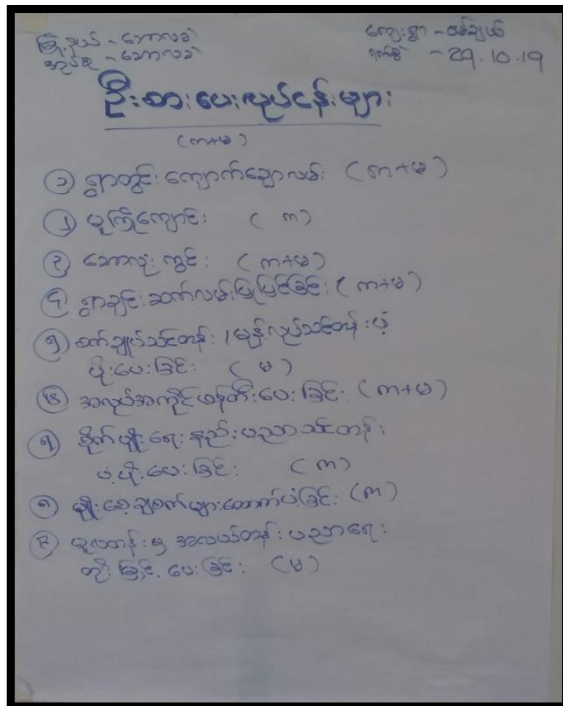 မြို့နယ် - ဘောလခဲ
ကျေးရွာ - ဝမ်ချယ်
အုပ်စု - ဘောလခဲ
ရက်စွဲ - 29.10.19
ဦးစားပေးလုပ်ငန်းများ
(က+မ)
၁ ရွာတွင်းကျောက်ချောလမ်း (က+မ)
၂ မူကြိုကျောင်း (က)
၃ ဘောလုံးကွင်း (က+မ)
၄ ရွာချင်းဆက်လမ်းပြုပြင်ခြင်း (က+မ)
၅ စက်ချုပ်သင်တန်း / မုန့်လုပ်သင်တန်း ပံ့
ပိုးပေးခြင်း (မ)
၆ အလုပ်အကိုင်ဖန်တီးပေးခြင်း (က+မ)
၇ စိုက်ပျိုးရေးနည်းပညာသင်တန်း
ပံ့ပိုးပေးခြင်း (က)
၈ မျိုးစေ့ချစက်များထောက်ပံ့ခြင်း (က)
၉ မူလတန်းမှ အလယ်တန်း ပညာရေး
တိုးမြှင့်ပေးခြင်း (မ)